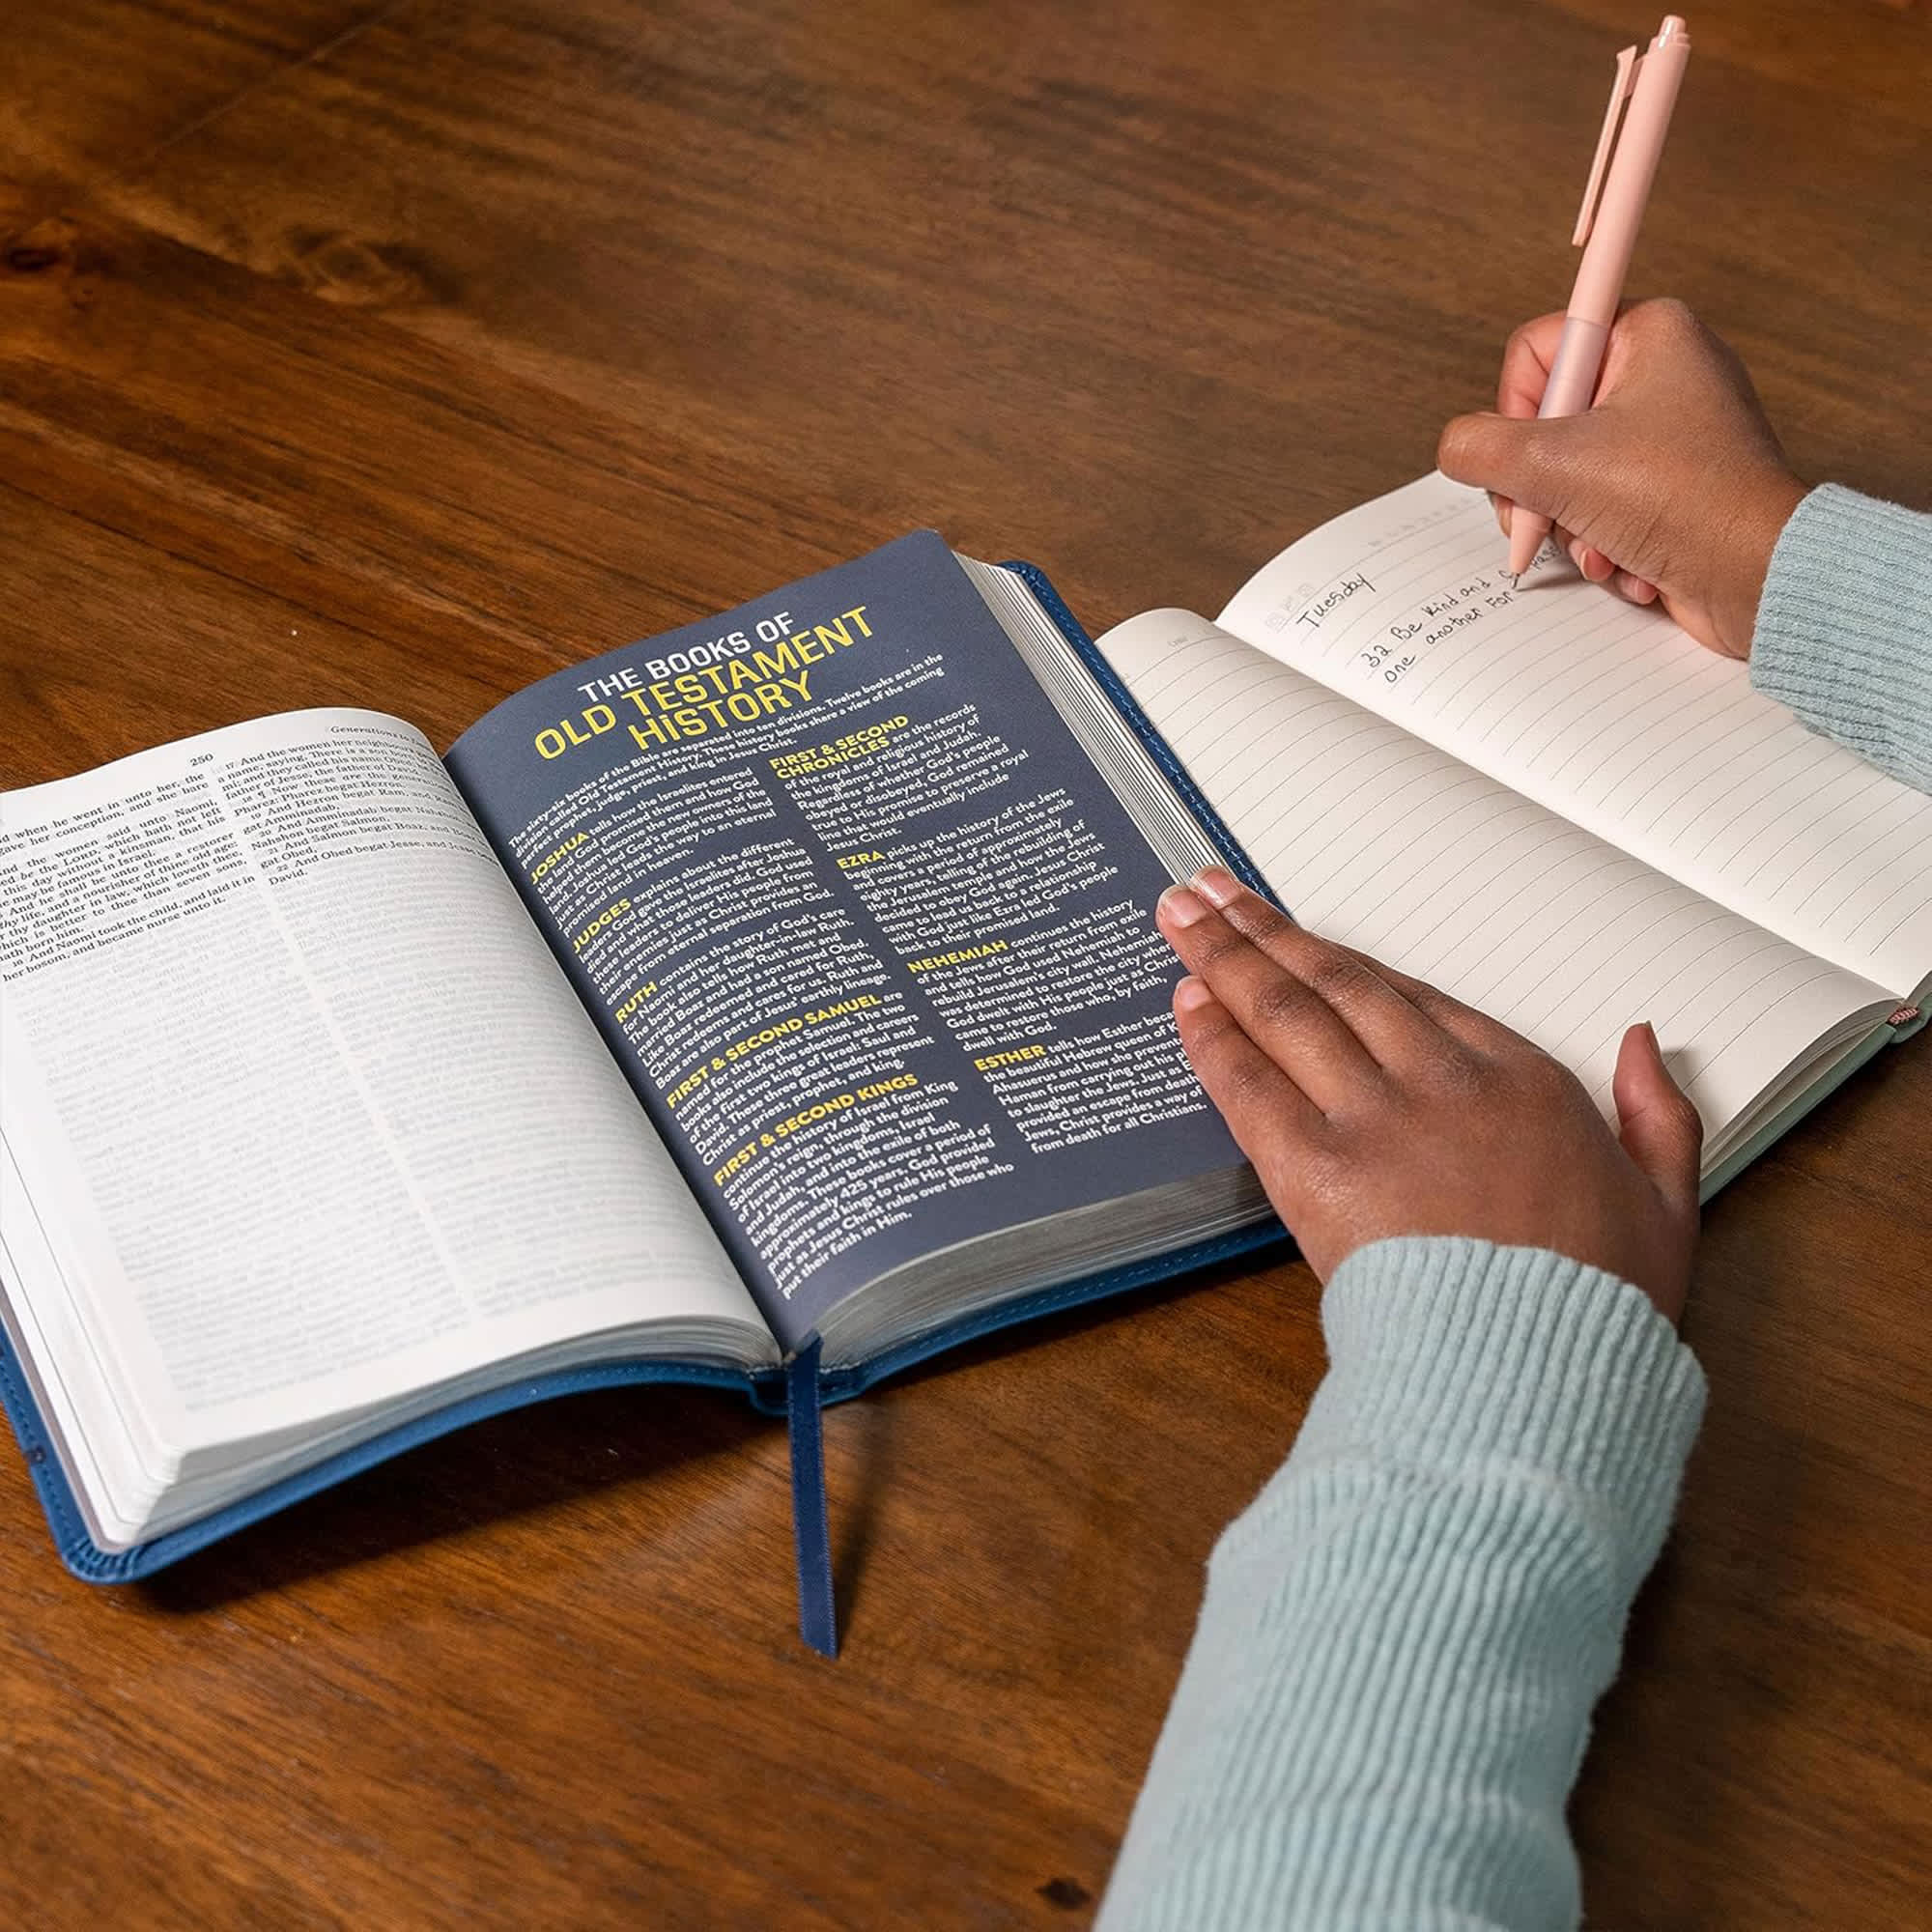 250
Generations to
d when he went in unto her, the
gave her conception, and she bare
nd the women said unto Naomi,
ed be the LORD, which hath not left
this day without a kinsman, that his
may be famous in Israel.
And he shall be unto thee a restorer
thy life, and a nourisher of thine old age:
r thy daughter in law, which loveth thee,
hich is better to thee than seven sons,
ath born him.
16 And Naomi took the child, and laid it in
her bosom, and became nurse unto it.
17 And the women her neighbours
a name, saying, There is a son born
mi; and they called his name Obed:
father of Jesse, the father of David.
18 ¶ Now these are the
Pharez: Pharez begat Hezron,
19 And Hezron begat Ram, and Ram
gat Amminadab,
20 And Amminadab begat Nahshon, and
Nahshon begat Salmon,
21 And Salmon begat Boaz, and Boaz
gat Obed,
22 And Obed begat Jesse, and Jesse
David.
THE BOOKS OF
OLD TESTAMENT
HISTORY
The sixty-six books of the Bible are separated into ten divisions. Twelve books are in the
division called Old Testament History. These history books share a view of the coming
perfect prophet, judge, priest, and king in Jesus Christ.
JOSHUA tells how the Israelites entered
the land God promised them and how God
helped them become the new owners of the
land. Joshua led God's people into this land
just as Christ leads the way to an eternal
promised land in heaven.
JUDGES explains about the different
leaders God gave the Israelites after Joshua
died and what those leaders did. God used
these leaders to deliver His people from
their enemies just as Christ provides an
escape from eternal separation from God.
RUTH contains the story of God's care
for Naomi and her daughter-in-law Ruth.
The book also tells how Ruth met and
married Boaz and had a son named Obed.
Like Boaz redeemed and cared for Ruth,
Christ redeems and cares for us. Ruth and
Boaz are also part of Jesus' earthly lineage.
FIRST & SECOND SAMUEL are
named for the prophet Samuel. The two
books also include the selection and careers
of the first two kings of Israel: Saul and
David. These three great leaders represent
Christ as priest, prophet, and king.
FIRST & SECOND KINGS
continue the history of Israel from King
Solomon's reign, through the division
of Israel into two kingdoms, Israel
and Judah, and into the exile of both
kingdoms. These books cover a period of
approximately 425 years. God provided
prophets and kings to rule His people
just as Jesus Christ rules over those who
put their faith in Him.
FIRST & SECOND
CHRONICLES are the records
of the royal and religious history of
the kingdoms of Israel and Judah.
Regardless of whether God's people
obeyed or disobeyed, God remained
true to His promise to preserve a royal
line that would eventually include
Jesus Christ.
EZRA picks up the history of the Jews
beginning with the return from the exile
and covers a period of approximately
eighty years, telling of the rebuilding of
the Jerusalem temple and how the Jews
decided to obey God again. Jesus Christ
came to lead us back to a relationship
with God just like Ezra led God's people
back to their promised land.
NEHEMIAH continues the history
of the Jews after their return from exile
and tells how God used Nehemiah to
rebuild Jerusalem's city wall. Nehemiah
was determined to restore the city where
God dwelt with His people just as Christ
came to restore those who, by faith,
dwell with God.
ESTHER tells how Esther beca
the beautiful Hebrew queen of K
Ahasuerus and how she prevent
Haman from carrying out his p
to slaughter the Jews. Just as E
provided an escape from death
Jews, Christ provides a way of
from death for all Christians.
Tuesday
32 Be kind and
one another For